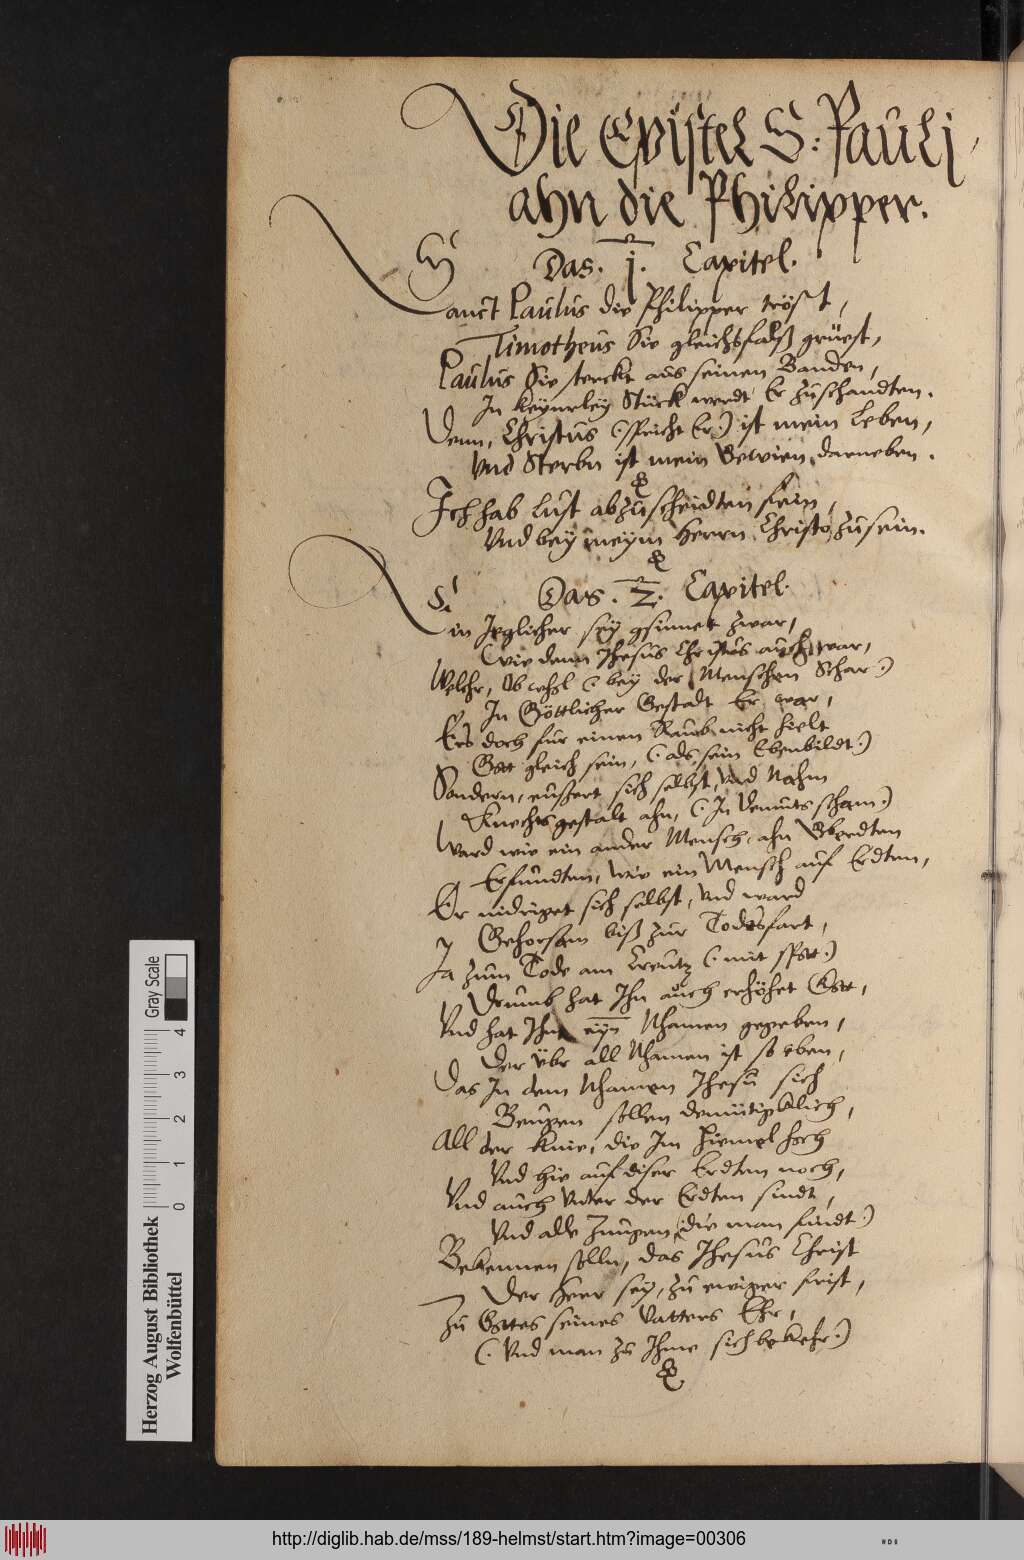 Die Epistel S: Paulj
ahn die Philipper.
Das. j. Capitel.
Sanct Paulus die Philipper tröst,
Timotheus Sie gleichsfalß grüest,
Paulus Sie sterckt aus seinen Banden,
In keynerley Stück werdt Er zuschandten.
Denn, Christus (: spricht Er :) ist mein Leben,
Vnd Sterbn ist mein Gewien darneben.
Ich hab lust abzuscheidten fein,
Vnd bey meym Herrn Christo zusein.
Das. 2. Capitel.
Ein Jeglicher sey gsinnet zwar,
Wie denn Jhesus Christus auch war,
Welchr, Ob wohl (: bey der Menschen Schar :)
In Göttlicher Gestadt Er war,
Ers doch für einen Raub nicht hielt
Gott gleich sein, (: als sein Ebenbildt :)
Sondern, eussert sich selbst, vnd Nahm
Knechtsgestalt ahn, (: In Demuts scham :)
Ward wie ein ander Mensch, ahn Gberdten
Erfundten, wie ein Mensch auf Erdten,
Er nidriget sich selbst, vnd ward
Gehorsam biß zur Todesfart,
Ja zum Tode am Creutz (: mit spott :)
Drumb hat Ihn auch erhöhet Gott,
Vnd hat Ihm eyn Nhamen gegeben,
Der übr all Nhamen ist so eben,
Das In dem Nhamen Jhesu sich
Beugen sollen demütigklich,
All der Knie, die Im Hiemel hoch
Vnd hie auf diser Erdten noch,
Vnd auch Vnter der Erdten sindt,
Vnd alle Zungen (die man findt :)
Bekennen solln, das Jhesus Christ
Der Herr sey, zu ewiger frist,
Zu Gottes seines Vatters Ehr,
(: Vnd man zu Ihme sich bekehr :)
Herzog August Bibliothek
Wolfenbüttel
Gray Scale
0 1 2 3 4
http://diglib.hab.de/mss/189-helmst/start.htm?image=00306